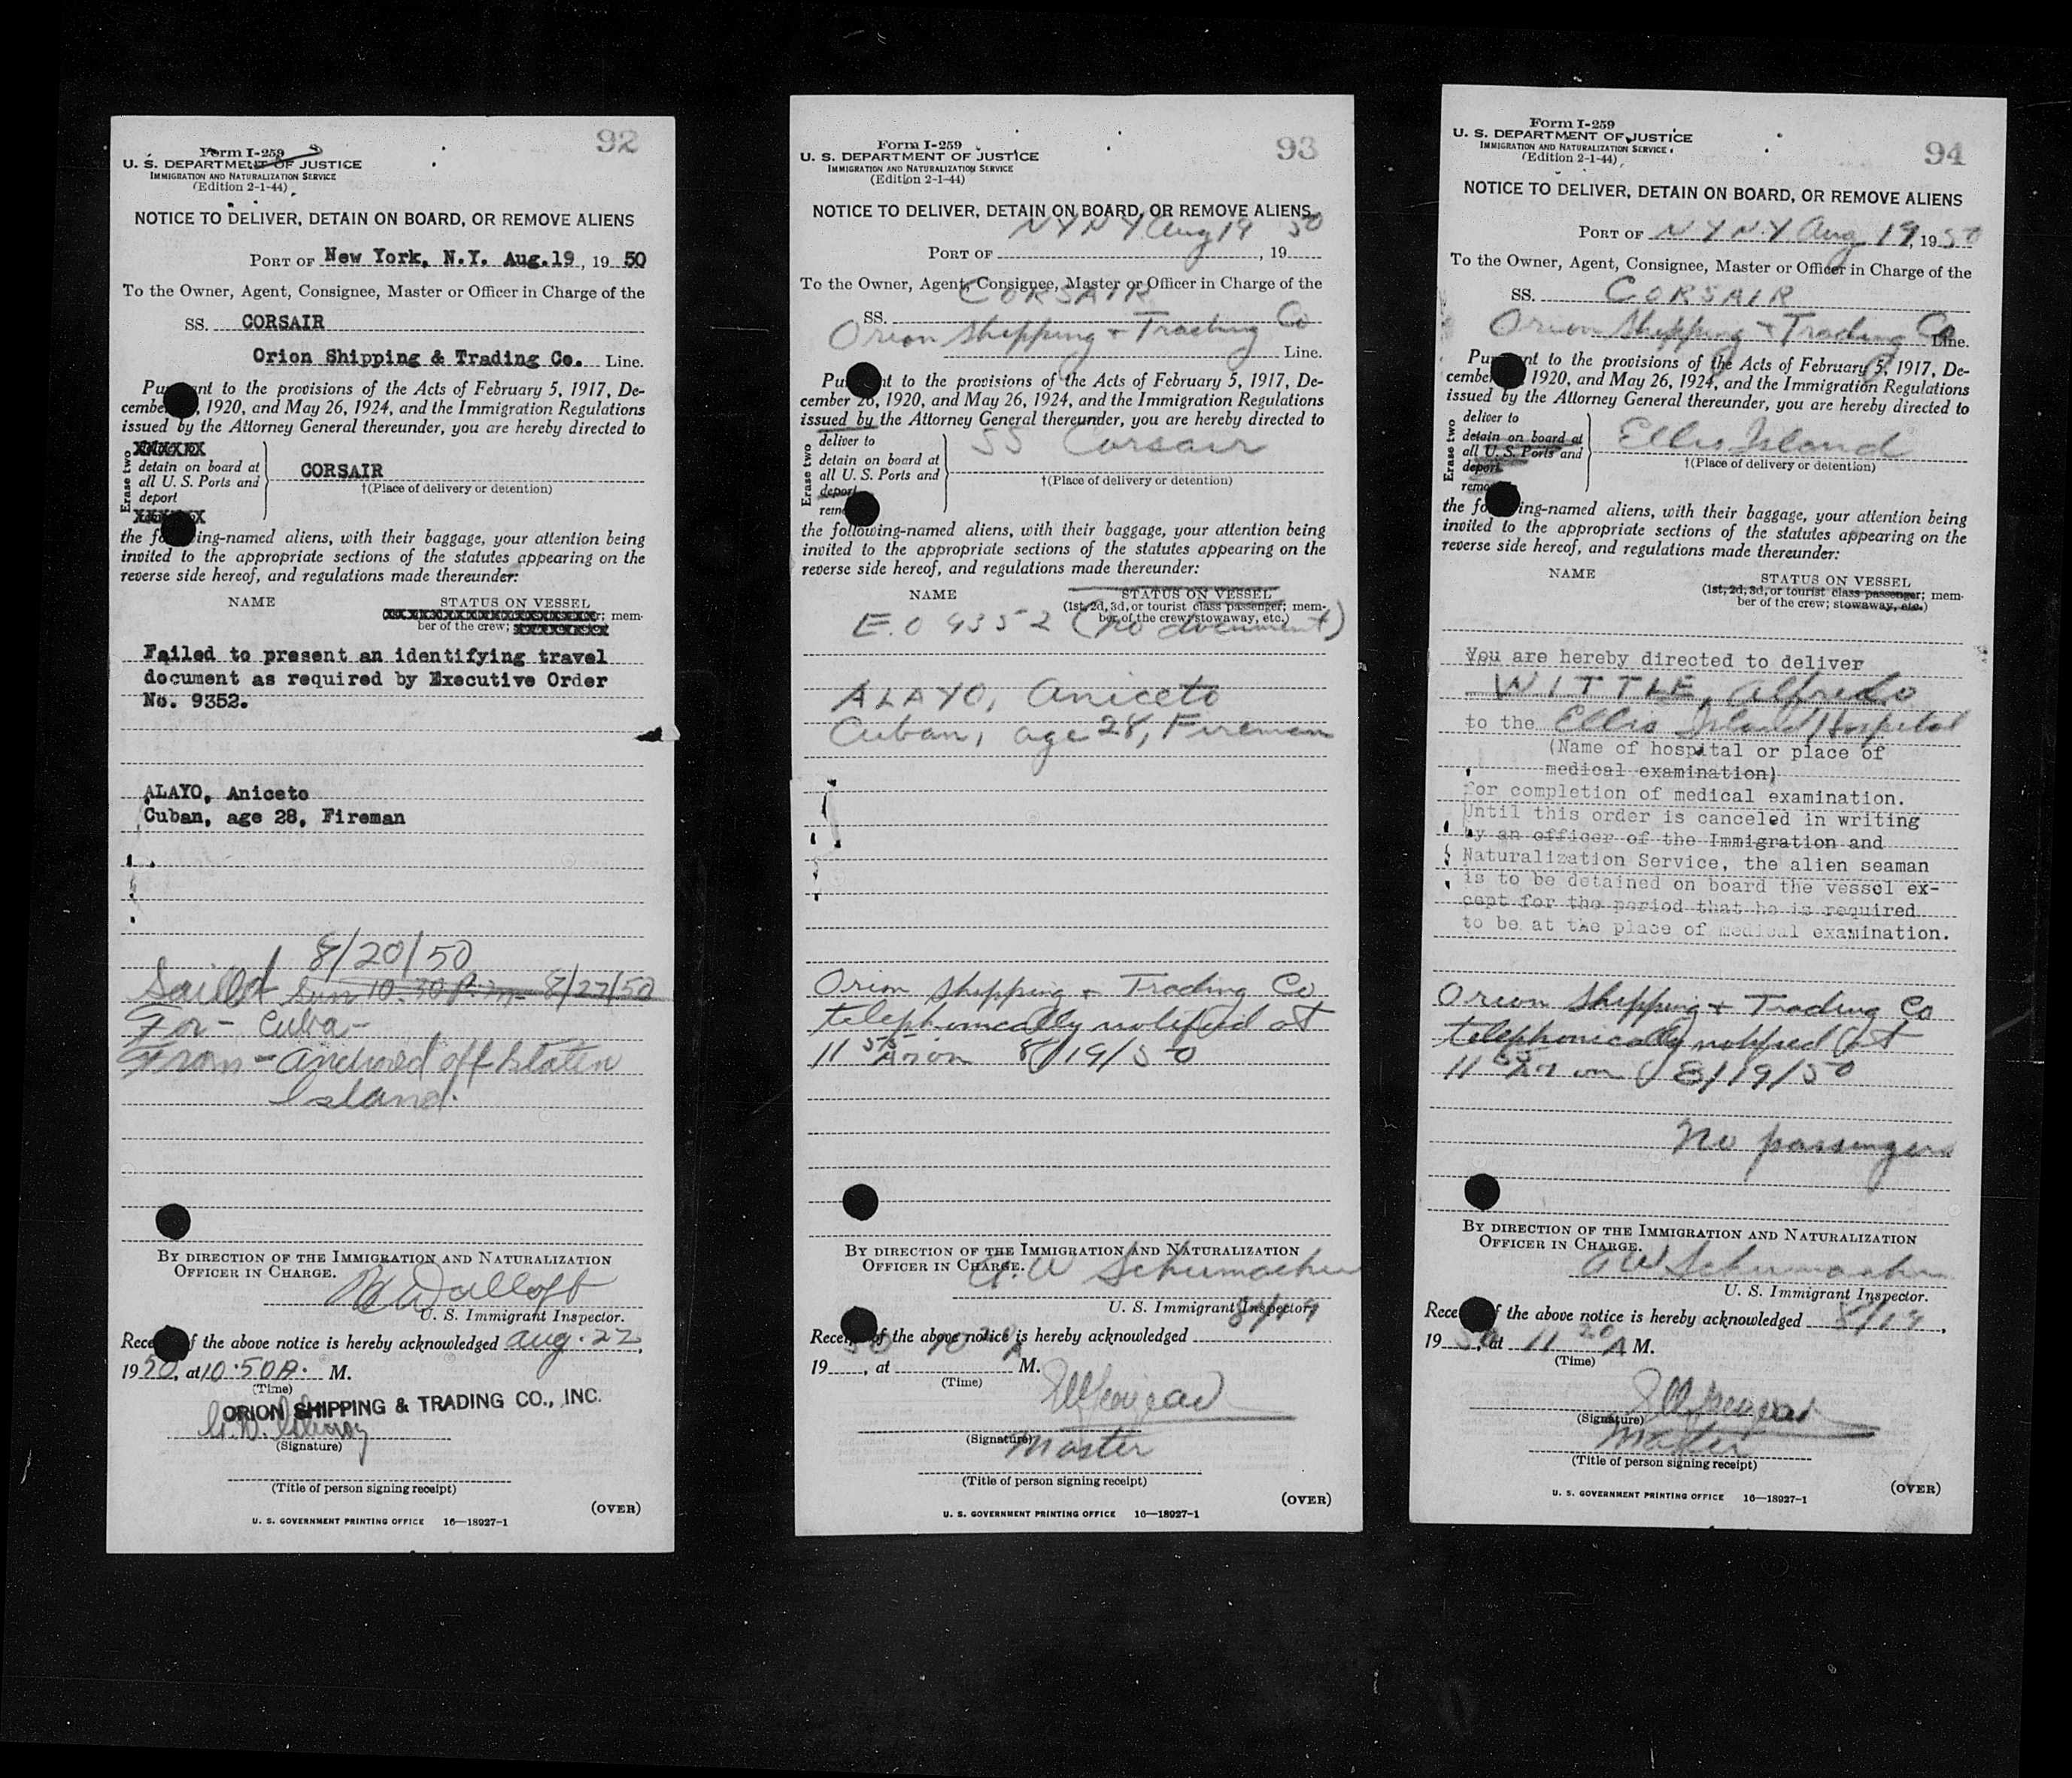 92
Form I-259
U. S. DEPARTMENT OF JUSTICE
IMMIGRATION AND NATURALIZATION SERVICE
(Edition 2-1-44)
NOTICE TO DELIVER, DETAIN ON BOARD, OR REMOVE ALIENS
PORT OF New York, N.Y. Aug.19, 19 50
To the Owner, Agent, Consignee, Master or Officer in Charge of the
SS. CORSAIR
Orion Shipping & Trading Co. Line.
Pu nt to the provisions of the Acts of February 5, 1917, De-
cembe , 1920, and May 26, 1924, and the Immigration Regulations
issued by the Attorney General thereunder, you are hereby directed to
Erase two
detain on board at
all U. S. Ports and
deport
CORSAIR
†(Place of delivery or detention)
the fo ing-named aliens, with their baggage, your attention being
invited to the appropriate sections of the statutes appearing on the
reverse side hereof, and regulations made thereunder:
NAME STATUS ON VESSEL
r; mem-
ber of the crew;
Failed to present an identifying travel
document as required by Executive Order
No. 9352.
ALAYO, Aniceto
Cuban, age 28, Fireman
8/20/50
Sailed Sun 10:30 P.M. 8/27/50
For - Cuba -
From - anchored off Staten
Island.
BY DIRECTION OF THE IMMIGRATION AND NATURALIZATION
OFFICER IN CHARGE.
U. S. Immigrant Inspector.
Rece f the above notice is hereby acknowledged Aug. 22,
1950, at 10:50 A. M.
(Time)
ORION SHIPPING & TRADING CO., INC.
(Signature)
(Title of person signing receipt)
(OVER)
U. S. GOVERNMENT PRINTING OFFICE 16—18927-1
93
Form I-259
U. S. DEPARTMENT OF JUSTICE
IMMIGRATION AND NATURALIZATION SERVICE
(Edition 2-1-44)
NOTICE TO DELIVER, DETAIN ON BOARD, OR REMOVE ALIENS
N Y N Y Aug 19 50
PORT OF , 19
To the Owner, Agent, Consignee, Master or Officer in Charge of the
CORSAIR
SS.
Orion Shipping + Trading Co
Line.
Pu nt to the provisions of the Acts of February 5, 1917, De-
cember 26, 1920, and May 26, 1924, and the Immigration Regulations
issued by the Attorney General thereunder, you are hereby directed to
Erase two
deliver to
detain on board at
all U. S. Ports and
deport
remo
SS Corsair
†(Place of delivery or detention)
the following-named aliens, with their baggage, your attention being
invited to the appropriate sections of the statutes appearing on the
reverse side hereof, and regulations made thereunder:
NAME STATUS ON VESSEL
(1st, 2d, 3d, or tourist class passenger; mem-
ber of the crew; stowaway, etc.)
E.O 9352 (No document)
ALAYO, Aniceto
Cuban, age 28, Fireman
Orion Shipping + Trading Co
telephonically notified at
11 55 A on 8/19/50
BY DIRECTION OF THE IMMIGRATION AND NATURALIZATION
OFFICER IN CHARGE.
A. W Schumacher
U. S. Immigrant Inspector.
8/19
Receipt of the above notice is hereby acknowledged
19 , at M.
(Time)
(Signature)
Master
(Title of person signing receipt)
(OVER)
U. S. GOVERNMENT PRINTING OFFICE 16—18927-1
94
Form I-259
U. S. DEPARTMENT OF JUSTICE
IMMIGRATION AND NATURALIZATION SERVICE
(Edition 2-1-44)
NOTICE TO DELIVER, DETAIN ON BOARD, OR REMOVE ALIENS
PORT OF N Y N.Y. Aug 19, 1950
To the Owner, Agent, Consignee, Master or Officer in Charge of the
SS. CORSAIR
Orion Shipping + Trading Co
Line.
Pu nt to the provisions of the Acts of February 5, 1917, De-
cember 1920, and May 26, 1924, and the Immigration Regulations
issued by the Attorney General thereunder, you are hereby directed to
Erase two
deliver to
detain on board at
all U. S. Ports and
deport
remo
Ellis Island
†(Place of delivery or detention)
the fo ing-named aliens, with their baggage, your attention being
invited to the appropriate sections of the statutes appearing on the
reverse side hereof, and regulations made thereunder:
NAME STATUS ON VESSEL
(1st, 2d, 3d, or tourist class passenger; mem-
ber of the crew; stowaway, etc.)
You are hereby directed to deliver
WITTLE, Alfredo
to the Ellis Island Hospital
(Name of hospital or place of
medical examination)
for completion of medical examination.
Until this order is canceled in writing
by an officer of the Immigration and
Naturalization Service, the alien seaman
is to be detained on board the vessel ex-
cept for the period that he is required
to be at the place of medical examination.
Orion Shipping + Trading Co
telephonically notified at
11 55 A on 8/19/50
No passengers
BY DIRECTION OF THE IMMIGRATION AND NATURALIZATION
OFFICER IN CHARGE.
A W Schumacher
U. S. Immigrant Inspector.
Rece f the above notice is hereby acknowledged 8/19,
1950, at 11 20 A M.
(Time)
(Signature)
Master
(Title of person signing receipt)
(OVER)
U. S. GOVERNMENT PRINTING OFFICE 16—18927-1